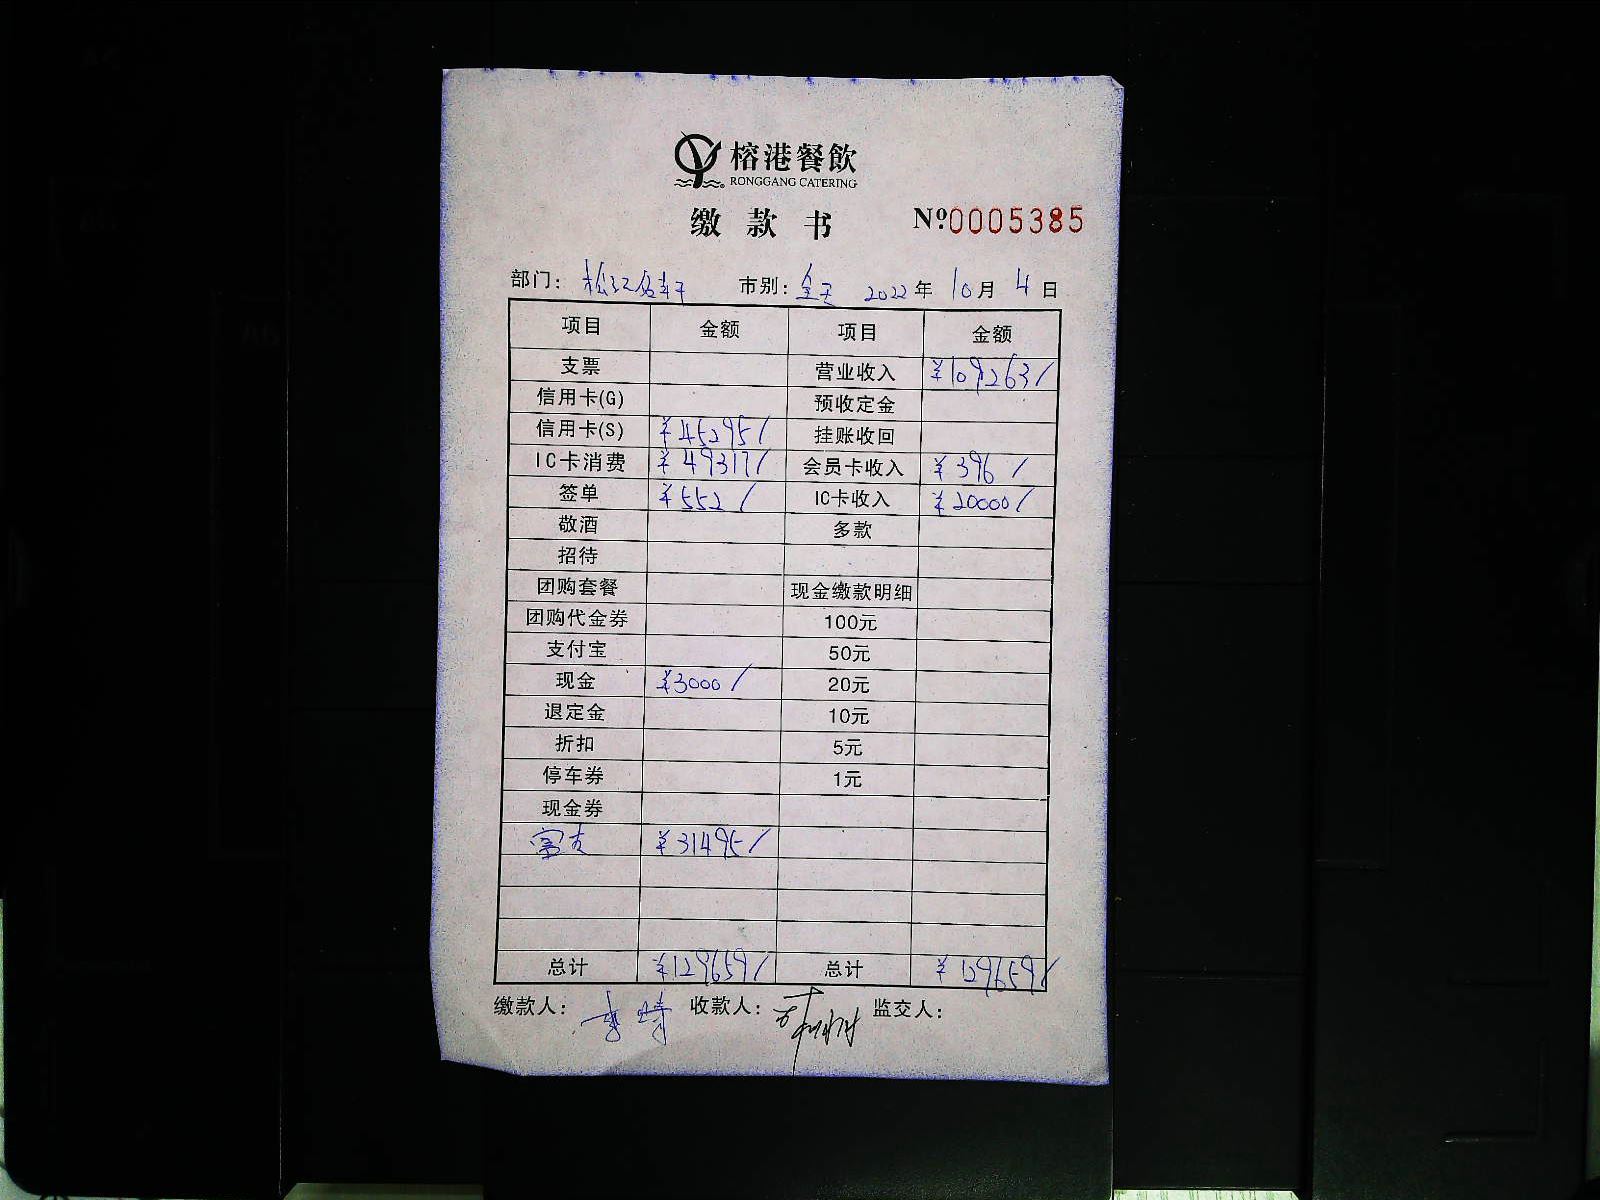 榕港餐飲
RONGGANG CATERING
缴款书 Nº:0005385
部门: 松江名轩 市别: 全天 2022年 10月 4日
项目 金额 项目 金额
支票 营业收入 ¥109263/
信用卡(G) 预收定金
信用卡(S) ¥45295/ 挂账收回
IC卡消费 ¥49317/ 会员卡收入 ¥396/
签单 ¥552/ IC卡收入 ¥20000/
敬酒 多款
招待
团购套餐 现金缴款明细
团购代金券 100元
支付宝 50元
现金 ¥3000/ 20元
退定金 10元
折扣 5元
停车券 1元
现金券
¥31495/
总计 ¥129659/ 总计 ¥129659/
缴款人: 收款人: 监交人: